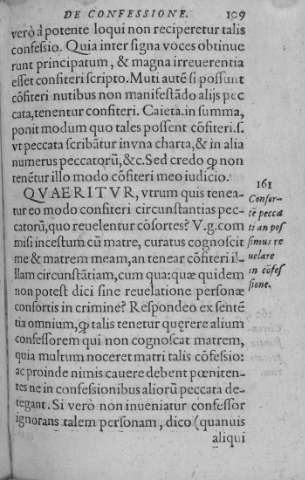 DE CONFESSIONE. 109
verò à potente loqui non reciperetur talis
confessio. Quia inter signa voces obtinue
runt principatum, & magna irreuerentia
esset confiteri scripto. Muti autē si possunt
cōfiteri nutibus non manifestādo alijs pec
cata, tenentur confiteri. Caieta. in summa,
ponit modum quo tales possent cōfiteri. s.
vt peccata scribātur in vna charta, & in alia
numerus peccatorū, &c. Sed credo ꝙ non
tenētur illo modo cōfiteri meo iudicio.
QVAERITVR, vtrum quis tenea-
tur eo modo confiteri circunstantias pec-
catorū, quo reuelentur cōsortes? V.g. com
misi incestum cū matre, curatus cognoscit
me & matrem meam, an tenear cōfiteri il-
lam circunstātiam, cum qua: quæ quidem
non potest dici sine reuelatione personæ
consortis in crimine? Respondeo ex sentē
tia omnium, ꝙ talis tenetur quęrere alium
confessorem qui non cognoscat matrem,
quia multum noceret matri talis cōfessio:
ac proinde nimis cauere debent pœniten-
tes ne in confessionibus aliorū peccata de-
tegant. Si verò non inueniatur confessor
ignorans talem personam, dico (quanuis
aliqui
161
Consor-
tē pecca
ti an pos
simus re
uelare
in cōfes
sione.